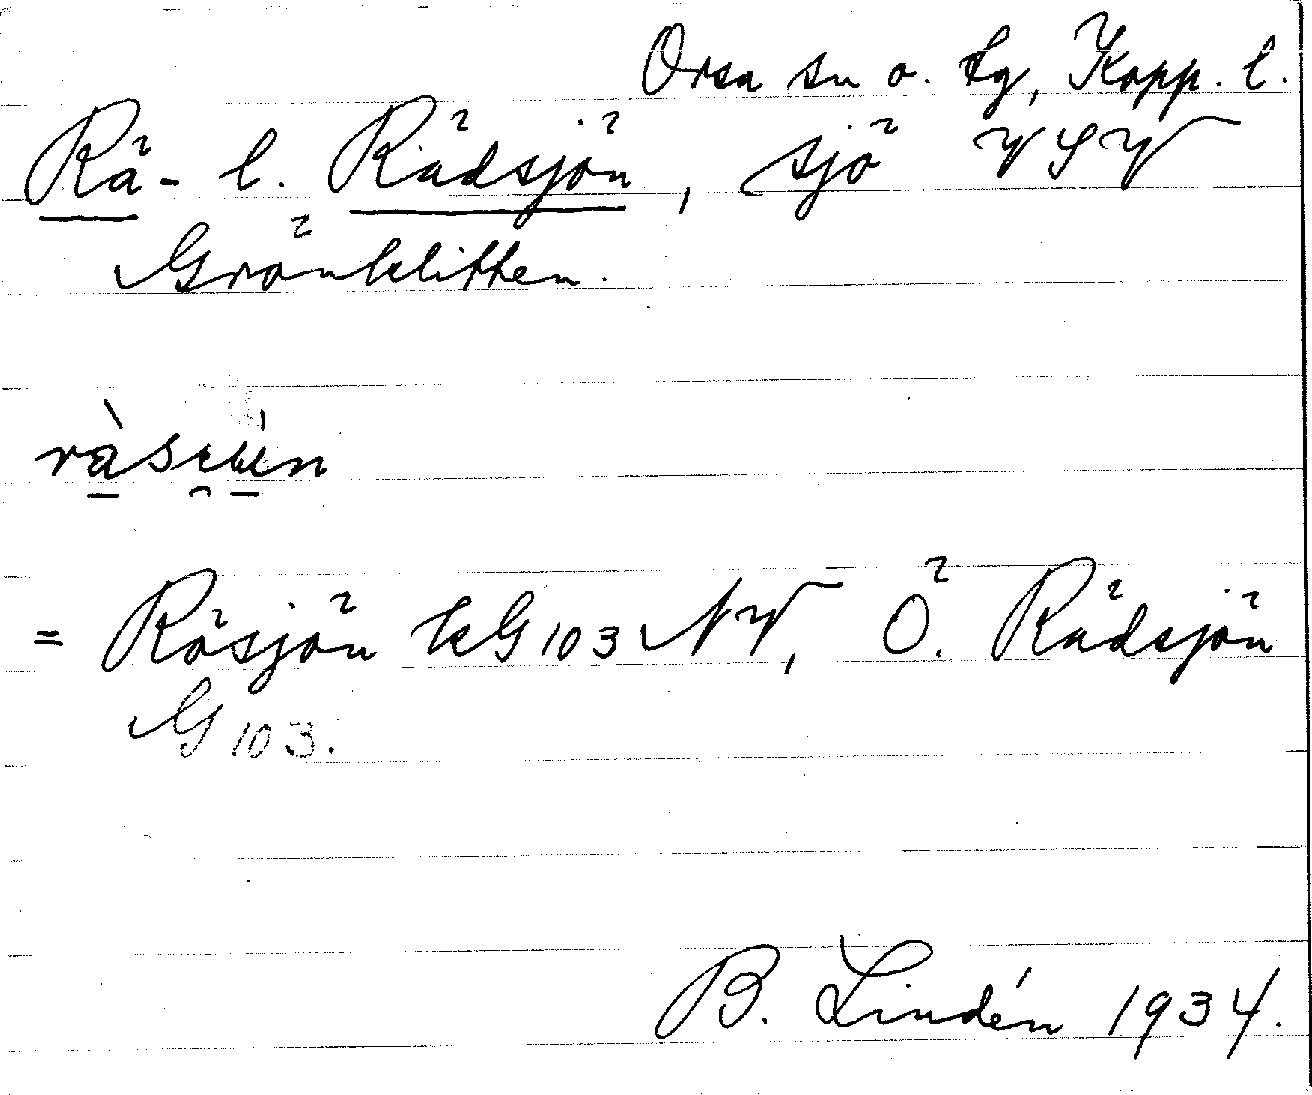 Orsa sn o. tg, Kopp. l.
Rä- l. Rädsjön, sjö VSV
Grönklitten.
ràsɩɯ̀n
= Rösjön kG 103 NV, Ö. Rädsjön
G 103.
B. Lindén 1934.